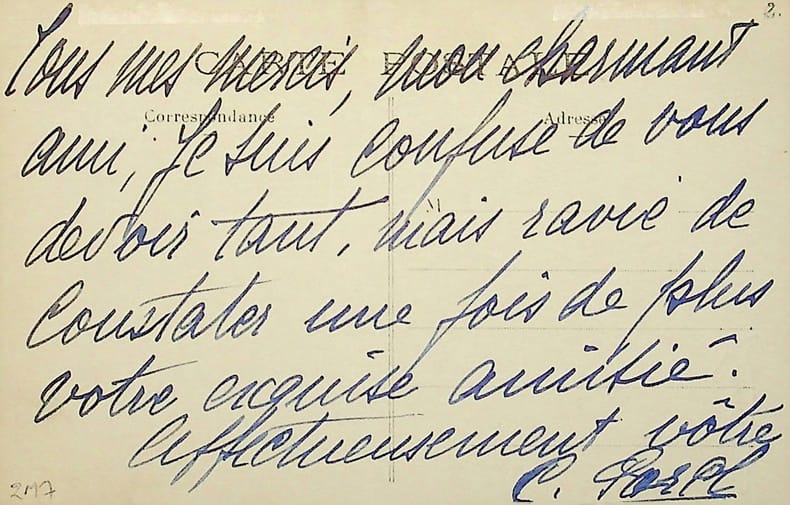 2.
Tous mes mercis, mon charmant
CARTE POSTALE
Correspondance
Adresse
ami, Je suis confuse de vous
M
devoir tant, mais ravie de
constater une fois de plus
votre exquise amitié.
Affectueusement vôtre
C. Porel
2117